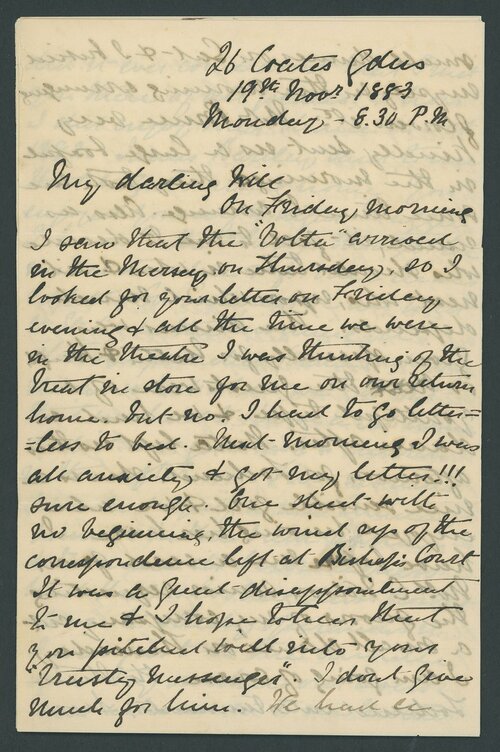 26 Coates Gdns
19th Novr 1883
Monday - 8.30 P.M
My darling Will
On Friday morning
I saw that the "Volta" arrived
in the Mersey on Thursday, so I
looked for your letter on Friday
evening & all the time we were
in the theatre I was thinking of the
treat in store for me on our return
home. But no. I had to go letter=
=less to bed. Next morning I was
all anxiety & got my letter!!!
sure enough. One sheet with
no beginning, the wind up of the
correspondence left at Bishop's Court
It was a great disappointment
to me & I hope to hear that
you pitched well into your
"trusty messenger". I don't give
much for him. We had a